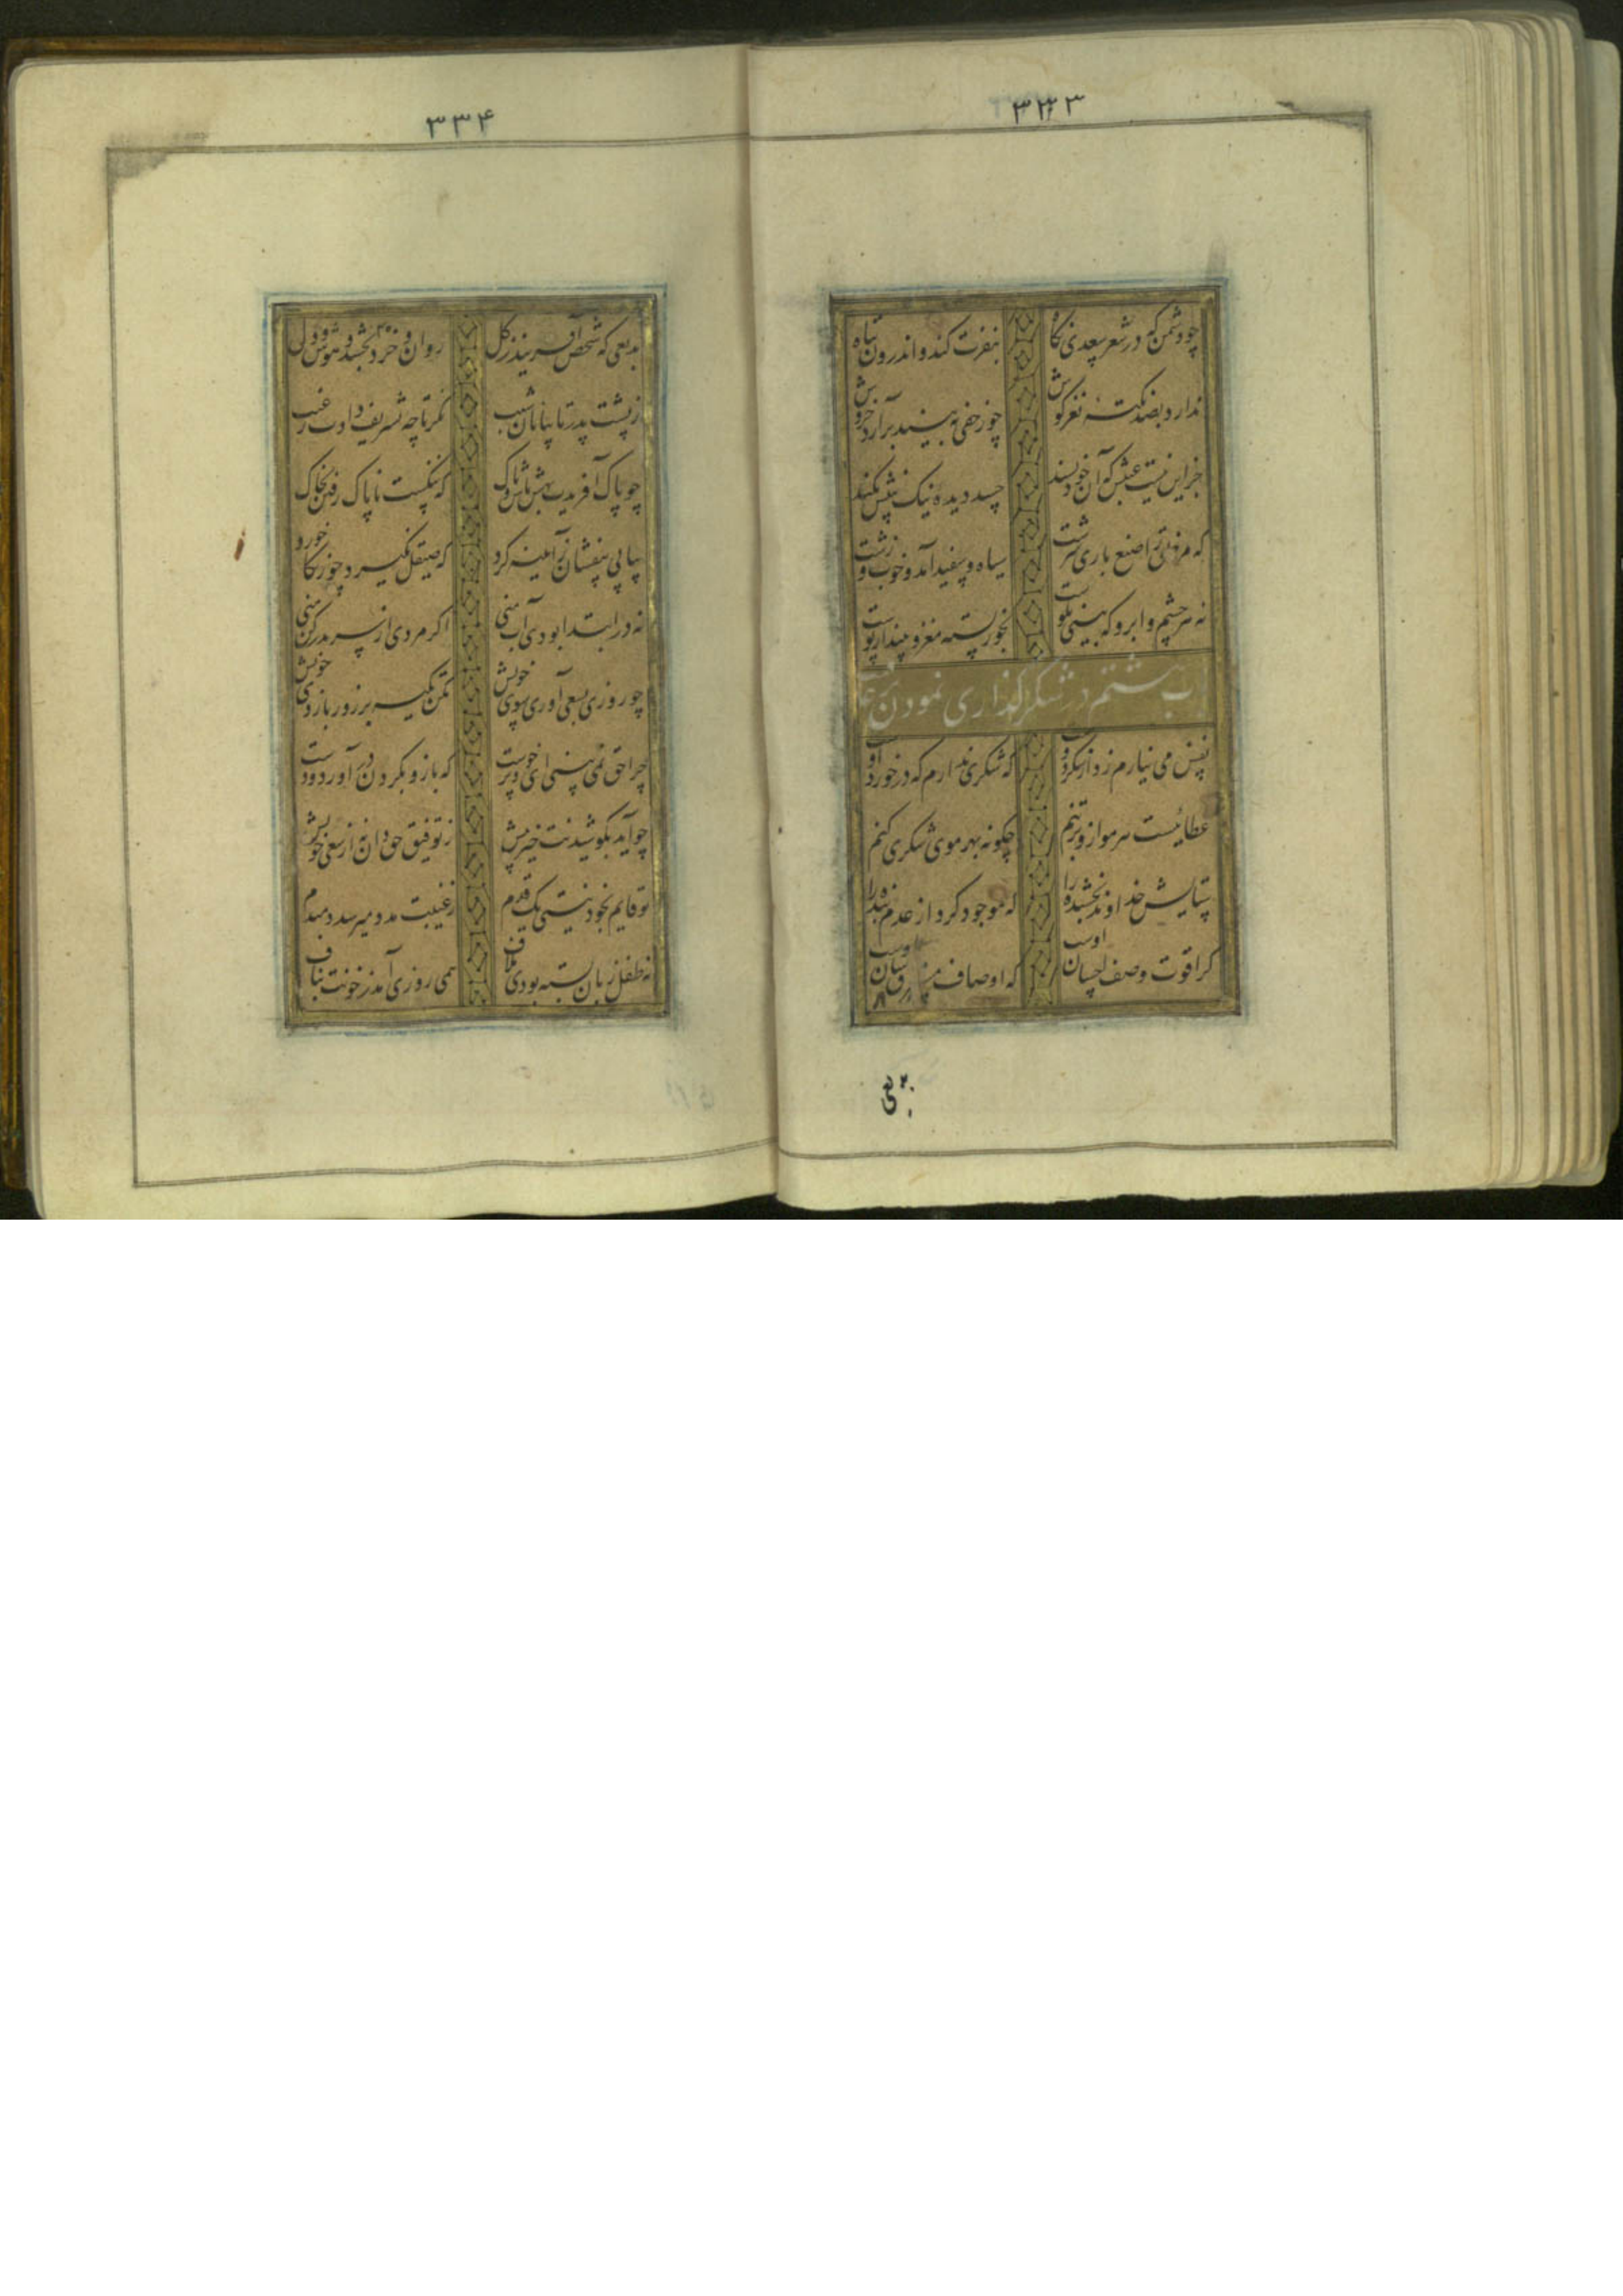 ۳۳۳
چو دشمن که در شعر سعدی نگاه
بنفرت کند و اندرون تباه
ندارد بصد نکته نغز گوش
چو زحفی به بیند برآرد خروش
جز این نیست عیبش که آن خود پسند
حسد دیده نیک بینش بکند
نه مر خلق را صنع باری سرشت
سیاه و سپید آمد و خوب و زشت
نه هر چشم و ابرو که بینی نکوست
بخور پسته مغز و بینداز پوست
باب هشتم در شکرگذاری نمودن
نفس می نیارم زد از شکر دوست
که شکری ندارم که در خورد اوست
عطائیست هر مو ازو بر تنم
چکونه بهر موی شکری کنم
ستایش خداوند بخشنده را
که موجود کرد از عدم بنده را
کرا قوت وصف احسان اوست
که اوصاف مستغرق شان اوست
بدیعی
۳۳۴
بدیعی که شخص آفریند ز کل
روان و خرد بخشد و هوش و دل
ز پشت پدر تا بپایان شیب
نکر تا چه تشریف دادت ز غیب
چو پاک آفریدت بهش باش و پاک
که ننکست ناپاک رفتن بخاک
پیاپی بیفشان ز آئینه کرد
که صیقل نکیرد چو زنکار خورد
نه در ابتدا بودی آب منی
اکر مردی از سر بدر کن منی
چو روزی بسعی آوری سوی خویش
مکن تکیه بر زور بازوی خویش
چرا حق نمی بینی ای خودپرست
که بازو بکردش درآورد و دست
چو آید بکوشیدنت خیر پیش
ز توفیق حق دان نه از سعی خویش
تو قایم بخود نیستی یک قدم
ز غیبت مدد میرسد دمبدم
نه طفل زبان بسته بودی ز لاف
همی روزی آمد ز خونت بناف